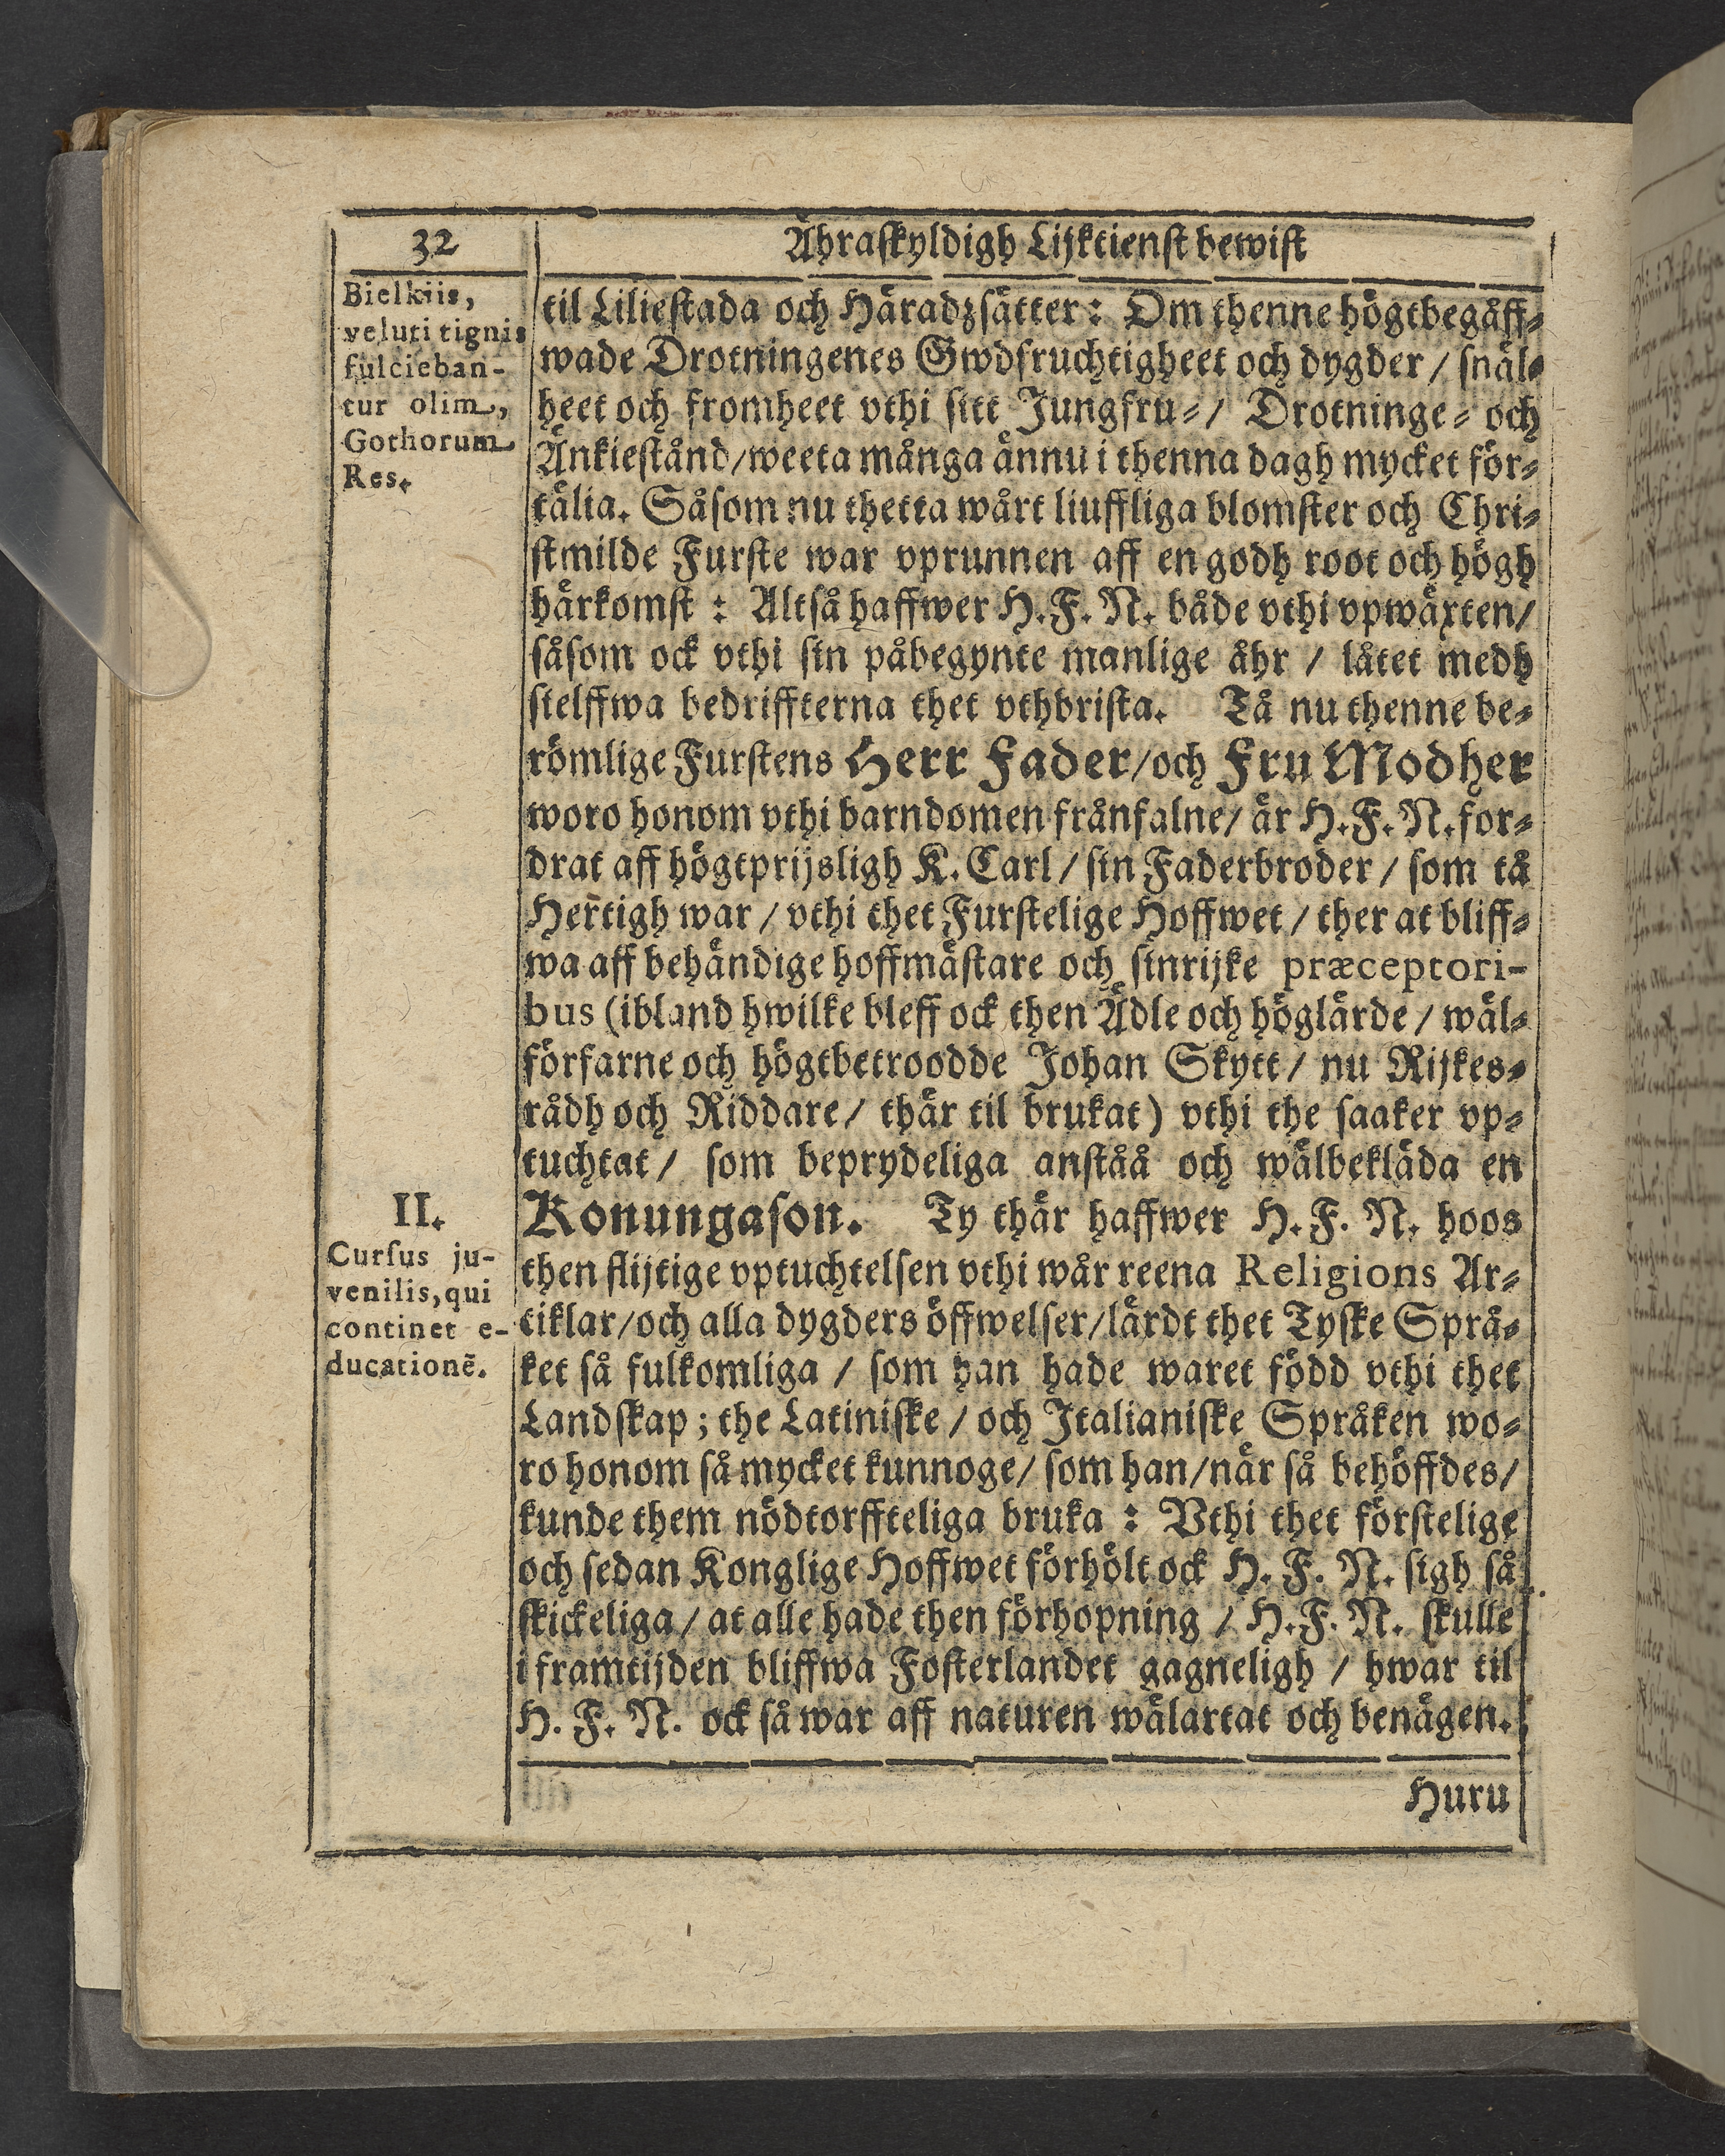 32
Ähraskyldigh Lijktienst bewist
Bielkiis,
veluti tignis
fulcieban-
tur olim,
Gothorum
Res.
til Liliestada och Häradzsätter: Om thenne högtbegåff-
wade Drotningenes Gwdfruchtigheet och dygder / snäl-
heet och fromheet vthi sitt Jungfru- / Drotninge- och
Änkiestånd/weeta många ännu i thenna dagh mycket för-
tälia. Såsom nu thetta wårt liuffliga blomster och Chri-
stmilde Furste war vprunnen aff en godh root och högh
härkomst: Altså haffwer H. F. N. både vthi vpwäxten/
såsom ock vthi sin påbegynte manlige åhr / låtet medh
sielffwa bedriffterna thet vthbrista. Tå nu thenne be-
römlige Furstens Herr Fader/och Fru Modher
woro honom vthi barndomen frånfalne/ är H. F. N. for-
drat aff högtprijsligh K. Carl / sin Faderbroder / som tå
Her̃tigh war / vthi thet Furstelige Hoffwet / ther at bliff-
wa aff behändige hoffmästare och sinrijke præceptori-
bus (ibland hwilke bleff ock then Ädle och höglärde / wäl-
förfarne och högtbetroodde Johan Skytt / nu Rijkes-
rådh och Riddare / thär til brukat) vthi the saaker vp-
tuchtat / som beprydeliga anståå och wälbekläda en
II.
Cursus ju-
venilis, qui
continet e-
ducationẽ.
Konungason. Ty thär haffwer H. F. N. hoos
then flijtige vptuchtelsen vthi wår reena Religions Ar-
tiklar/och alla dygders öffwelser/lärdt thet Tyske Språ-
ket så fulkomliga / som han hade waret född vthi thet
Landskap; the Latiniske / och Italianiske Språken wo-
ro honom så mycket kunnoge/ som han/när så behöffdes/
kunde them nödtorffteliga bruka: Vthi thet förstelige
och sedan Konglige Hoffwet förhölt ock H. F. N. sigh så
skickeliga / at alle hade then förhopning / H. F. N. skulle
i framtijden bliffwa Fosterlandet gagneligh / hwar til
H. F. N. ock så war aff naturen wälartat och benägen.
Huru